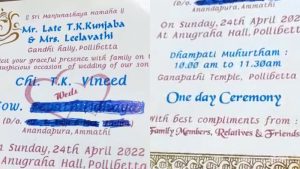 Sri Manjunathaya namaha
Mr. Late T.K.Kunjaba
& Mrs. Leelavathi
Gandhi hally, Pollibetta
your graceful presence with family on
auspicious occasion of wedding of our son
Chi. T.K. Vineed
Weds
Sow.
Anandapura, Ammathi
On Sunday, 24th April 2022
Anugraha Hall, Pollibetta
Anandapura, A
On Sunday, 24th April 2022
At Anugraha Hall, Pollibetta
Dhampati Muhurtham :
10.00 am to 11.30am
Ganapathi Temple, Pollibetta
One day Ceremony
With best compliments from :
Family Members, Relatives & Friends